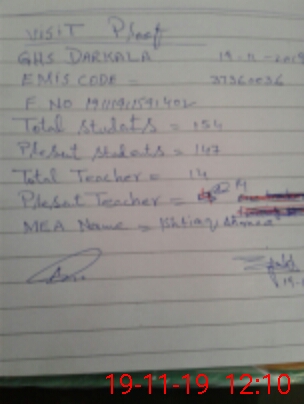 VISIT Proof
GHS DARKALA 19-11-2019
EMIS CODE = 37360036
F NO
Total students = 154
Present students = 147
Total Teacher = 14
Present Teacher =
MEA Name = Ishtiaq Ahmad
19-11-19 12:10